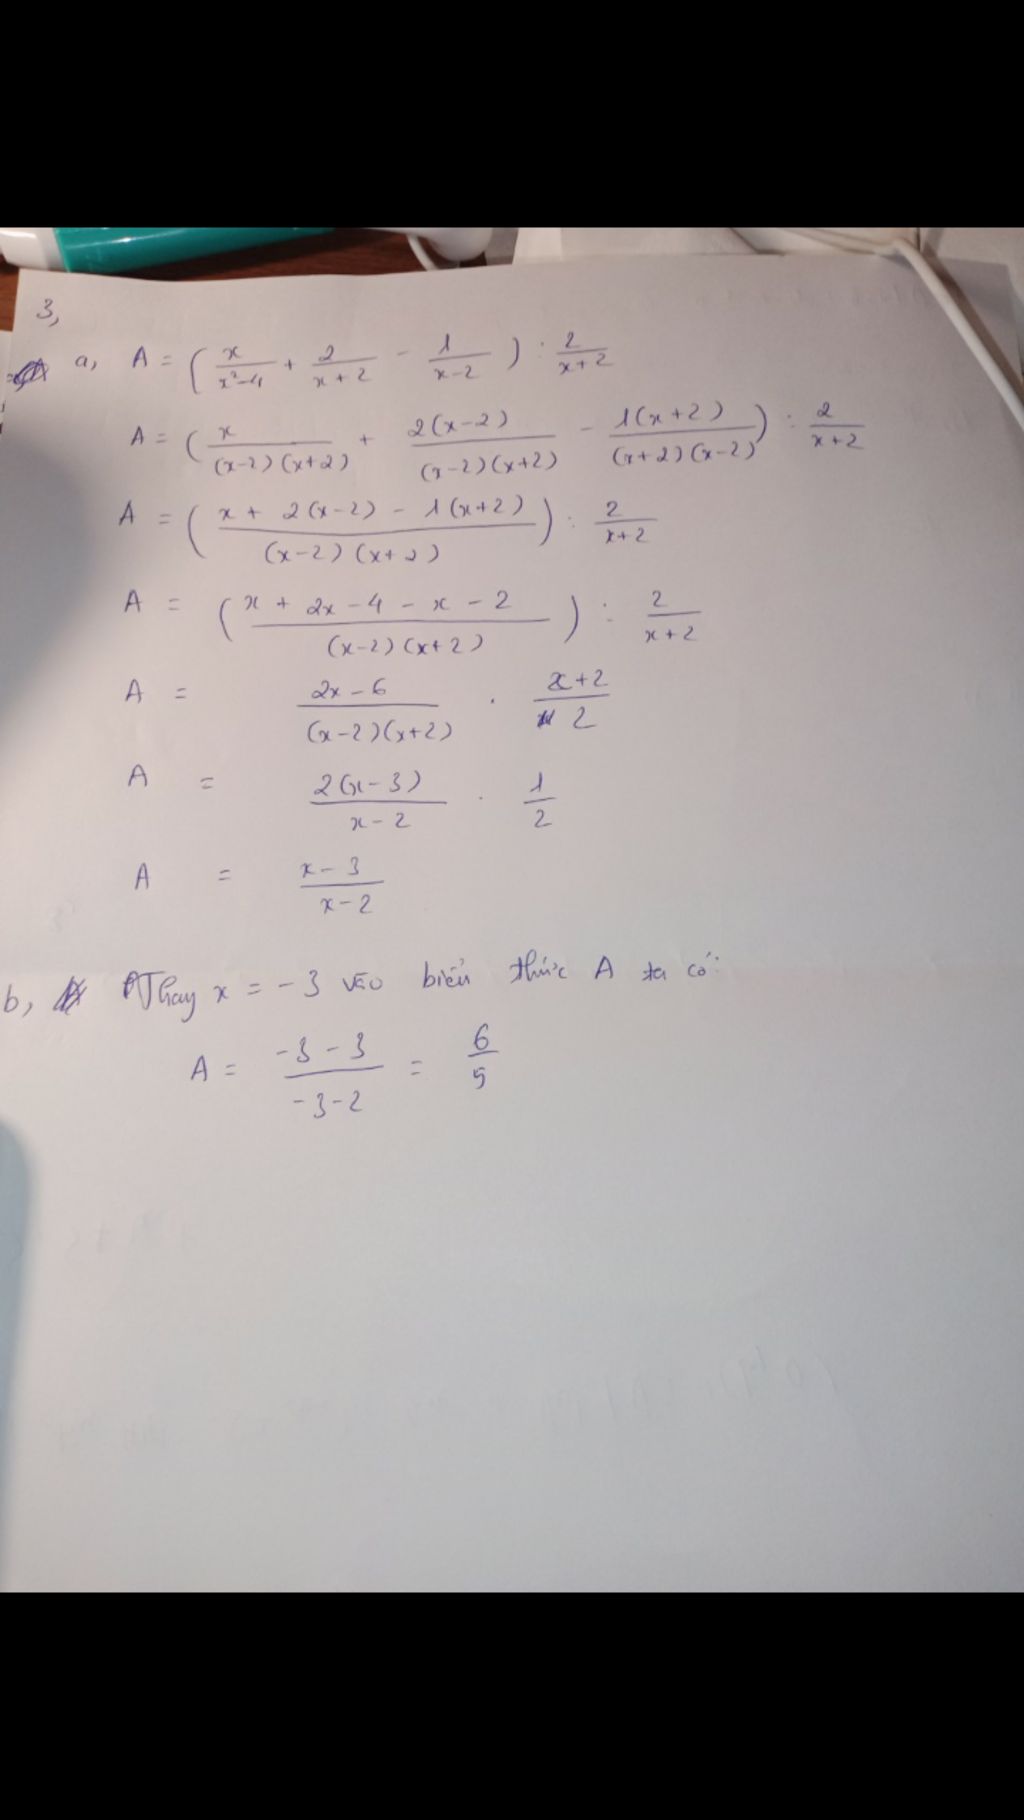 3,
a, A = ( x/(x²-4) + 2/(x+2) - 1/(x-2) ) : 2/(x+2)
A = ( x/((x-2)(x+2)) + 2(x-2)/((x-2)(x+2)) - 1(x+2)/((x+2)(x-2)) ) : 2/(x+2)
A = ( (x + 2(x-2) - 1(x+2))/((x-2)(x+2)) ) : 2/(x+2)
A = ( (x + 2x - 4 - x - 2)/((x-2)(x+2)) ) : 2/(x+2)
A = (2x-6)/((x-2)(x+2)) . (x+2)/2
A = 2(x-3)/(x-2) . 1/2
A = (x-3)/(x-2)
b, Thay x = -3 vào biểu thức A ta có:
A = (-3-3)/(-3-2) = 6/5